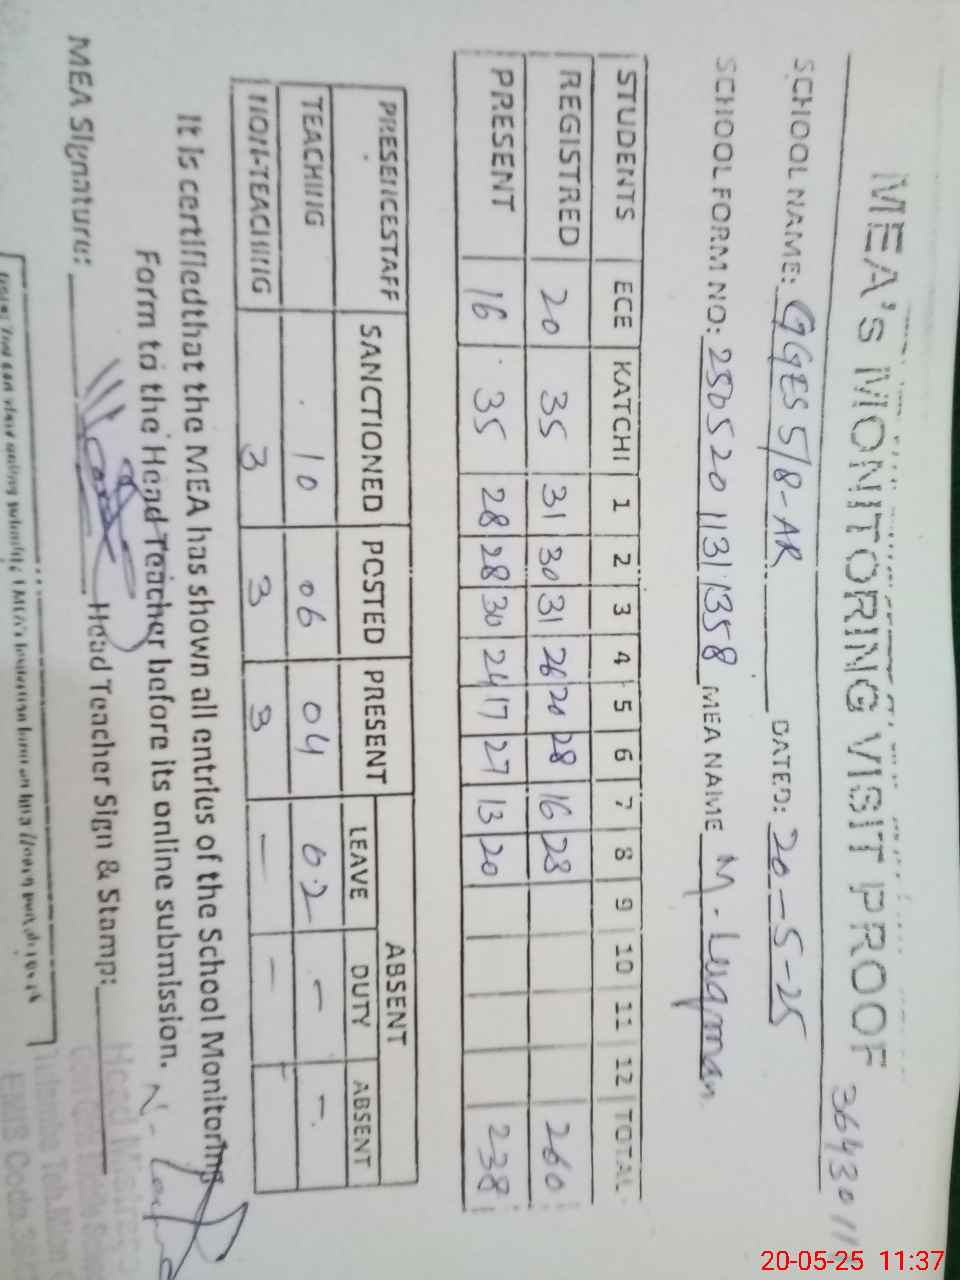 MEA'S MONITORING VISIT PROOF 3643011
SCHOOL NAME: GGES 5/8-AR DATED: 20-5-25
SCHOOL FORM NO: 250520 1131358 MEA NAME M. Luqman
STUDENTS ECE KATCHI 1 2 3 4 5 6 7 8 9 10 11 12 TOTAL
REGISTRED 20 35 31 30 31 26 20 28 16 23 260
PRESENT 16 35 28 28 30 24 17 27 13 20 238
PRESENCESTAFF SANCTIONED POSTED PRESENT ABSENT
LEAVE DUTY ABSENT
TEACHING 10 06 04 02 - -
NON-TEACHING 3 3 3 - -
It is certifiedthat the MEA has shown all entries of the School Monitoring
Form to the Head Teacher before its online submission.
MEA Signature: Head Teacher Sign & Stamp:
Head
EMIS Code
20-05-25 11:37